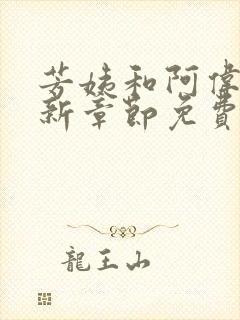 芳姨和阿偉
新章節免費
龍王山